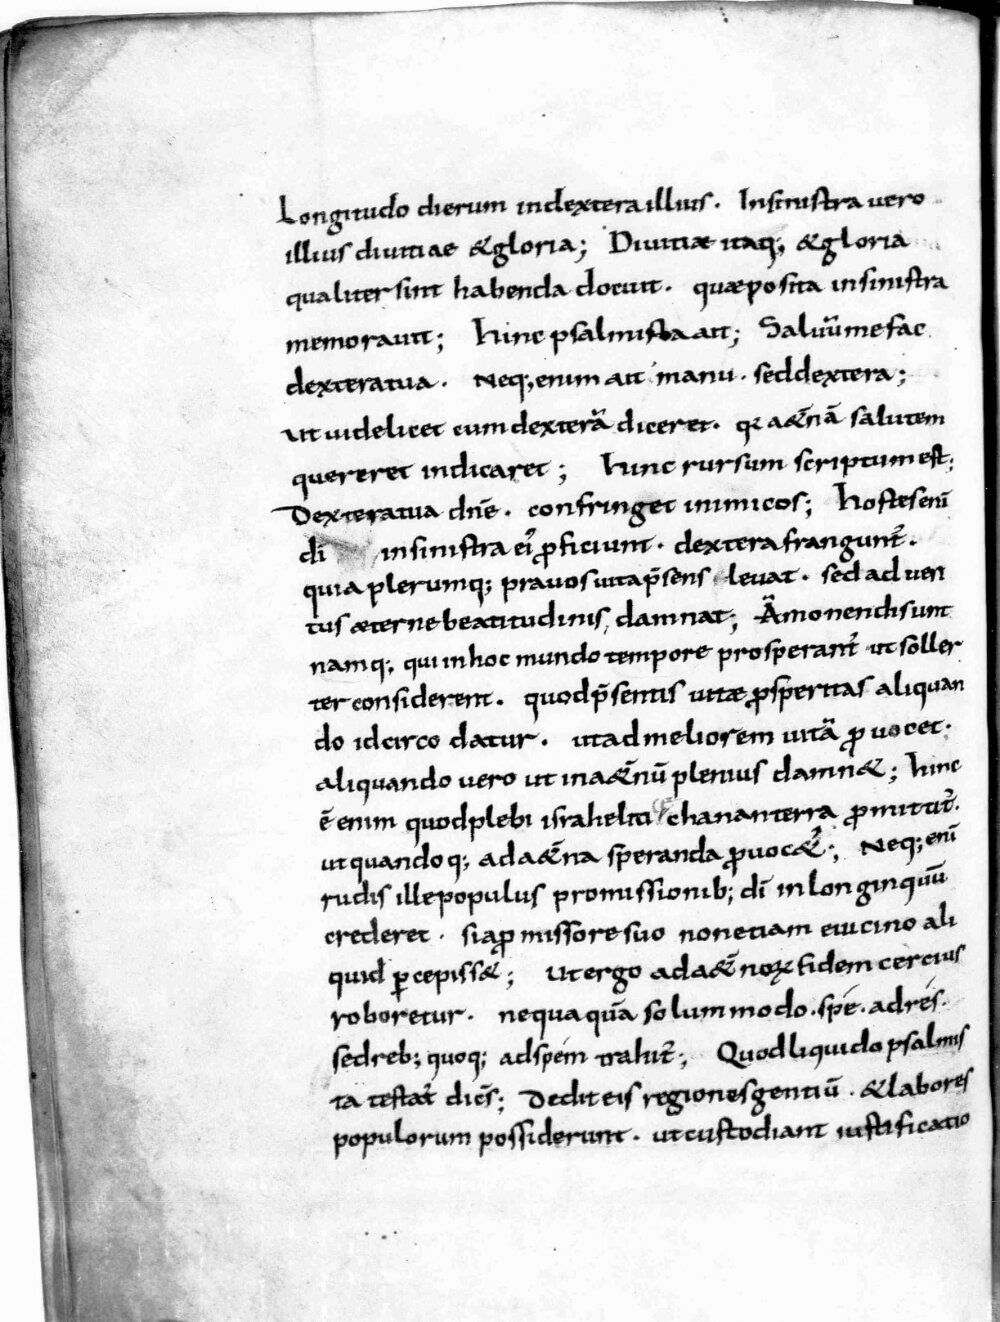 Longitudo dierum indextera illius. Insinistra vero
illius divitiae &gloria; Divitiæ itaq; &gloria
qualiter sint habenda docuit. quæposita insinistra
memoravit; hinc psalmista ait; Saluũ me fac
dextera tua. Neq; enim ait manu. sed dextera;
ut videlicet cum dexterã diceret. q̄ a&̄nã salutem
quereret indicaret; hinc rursum scriptum est;
Dextera tua dnē. confringet inimicos; hostes enī
dī insinistra ei᾽ ꝓficiunt. dextera frangunt᾽.
quia plerumq; pravos vita p̄sens levat. sed adven
tus æterne beatitudinis damnat; Ãmonendi sunt
namq; qui in hoc mundo tempore prosperant᾽ ut soller
ter considerent. quod p̄sentis vitæ ꝓsperitas aliquan
do idcirco datur. ut ad meliorem vitã ꝓvocet.
aliquando vero ut in a&̄nũ plenius damn&; hinc
ē enim quod plebi israhelitice chanan terra ꝓmittit᾽.
ut quandoq; ad a&̄na speranda ꝓvoc&᾽; Neq; enī
rudis ille populus promissionib; dī in longinquũ
crederet. si a ꝓmissore suo non etiam e vicino ali
quid ꝑcepiss&; Ut ergo ad a&̄noꝝ fidem cercius
roboretur. nequaquã solummodo. spé. ad rés.
sed reb; quoq; ad spém trahit᾽; Quod liquido psalmis
ta testat᾽ dics̄; Dedit eis regiones gentiũ. &labores
populorum possiderunt. ut custodiant iustificatio